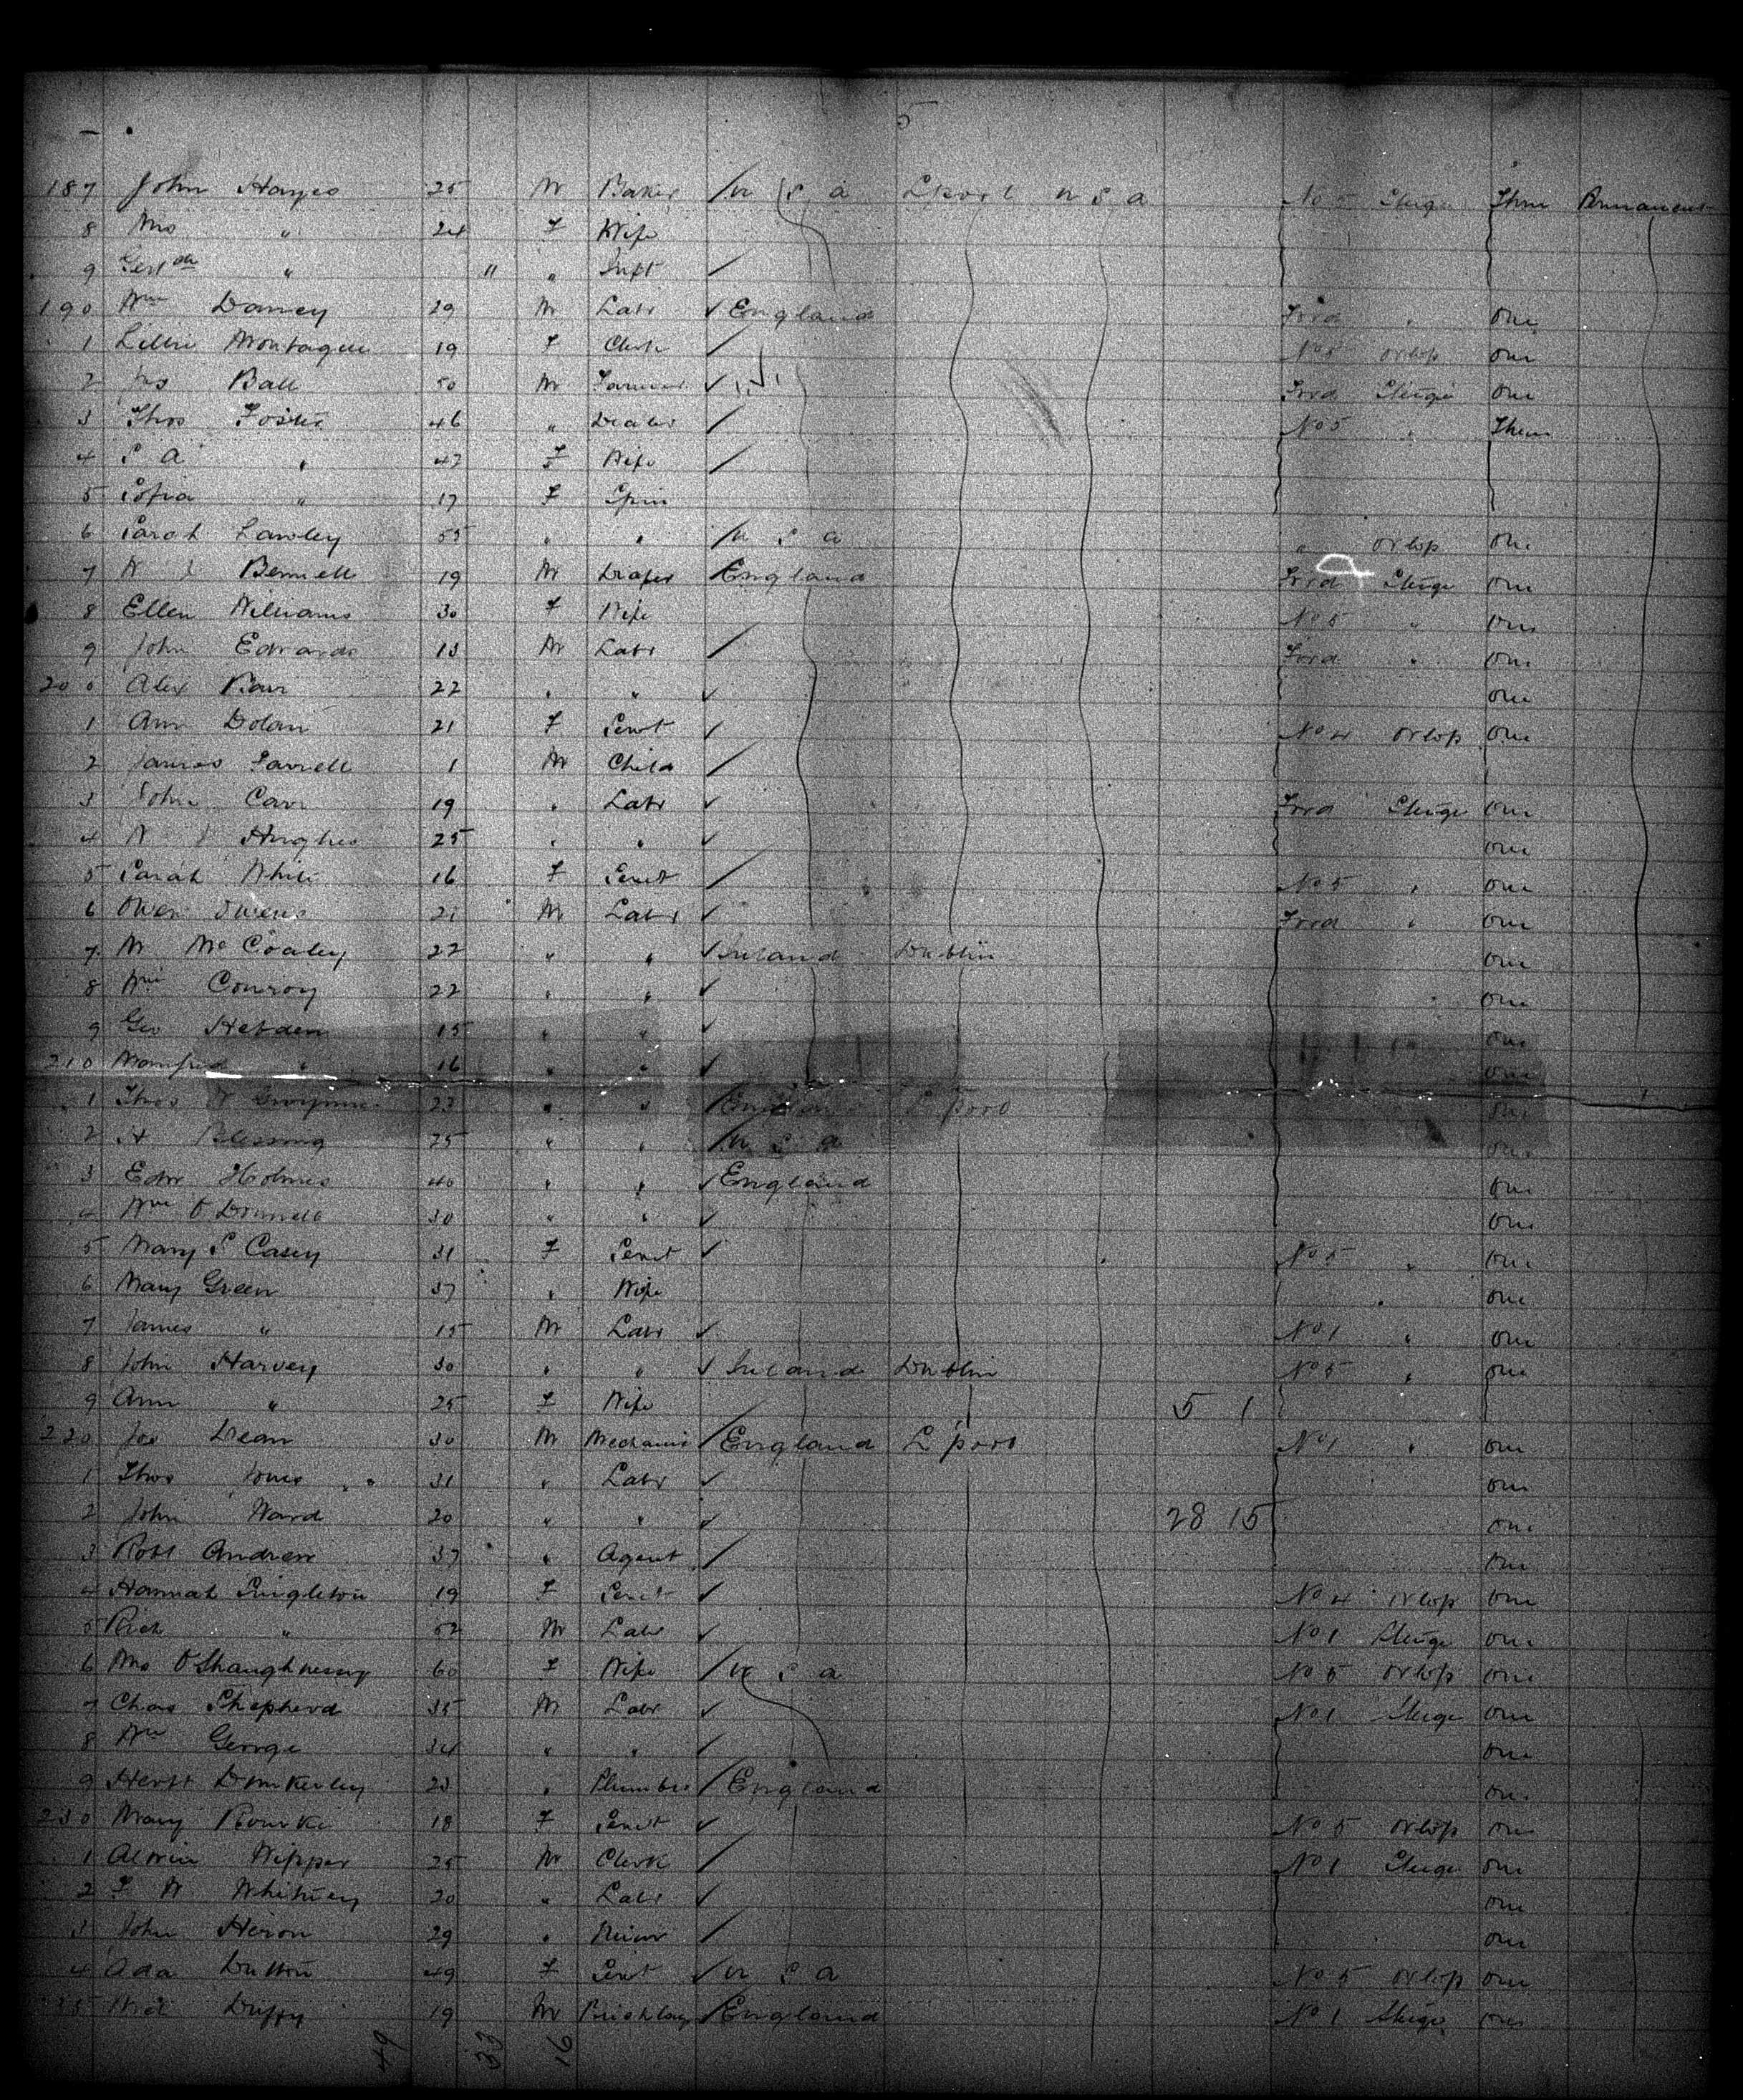 5
187 John Hayes 25 M Baker U S A L'pool U S A No 5 Steige Three Permanent
8 Mrs " 24 F Wife
9 " " " Inft
190 Wm Davney 29 M Labr England Frd " one
1 Lillie Montague 19 F Clerk No 5 Orlop one
2 Jas Ball 50 M Farmer Frd Steige one
3 Thos Foster 46 " Dealer No 5 " Three
4 S A " 47 F Wife
5 Sofia " 17 F Spin
6 Sarah Lawley 55 " " U S A " Orlop one
7 W J Bennett 19 M Draper England Frd Steige one
8 Ellen Williams 30 F Wife No 5 " one
9 John Edwards 18 M Labr Frd " one
200 Alex Barr 22 " " one
1 Ann Dolan 21 F Servt No 4 Orlop one
2 James Farrell 1 M Child
3 John Carr 19 " Labr Frd Steige one
4 W J Hughes 25 " " one
5 Sarah White 16 F Servt No 5 " one
6 Owen Owens 21 M Labr Frd " one
7 M McCoaley 22 " " Ireland Dublin one
8 Wm Conroy 22 " " " one
9 Geo Hebden 15 " " one
210 " 16 " " one
1 Thos W Gwynne 23 " " England L'pool one
2 A Blessing 25 " " U S A one
3 Edw Holmes 40 " " England one
4 Wm O'Donnell 30 " " one
5 Mary S Casey 31 F Servt No 5 " one
6 Mary Green 37 " Wife " one
7 James " 15 M Labr No 1 " one
8 John Harvey 30 " " Ireland Dublin No 5 " one
9 Ann " 25 F Wife 5 1
220 Jos Dean 30 M Mechanic England L'pool No 1 " one
1 Thos Jones 31 " Labr one
2 John Ward 20 " " 28 15 one
3 Robt Andrew 37 " Agent one
4 Hannah Singleton 19 F Servt No 4 Orlop one
5 Rich " 52 M Labr No 1 Steige one
6 Mrs O'Shaughnessy 60 F Wife U S A No 5 Orlop one
7 Chas Shepherd 35 M Labr No 1 Steige one
8 Wm George 34 " " one
9 Herbt Dunkerley 23 " Plumber England one
230 Mary Rourke 18 F Servt No 5 Orlop one
1 Alwin Wipper 25 M Clerk No 1 Steige one
2 F W Whitney 20 " Labr one
3 John Heron 29 " Miner one
4 Ada Dutton 49 F Servt U S A No 5 Orlop one
235 Duffy 19 M Bricklay England No 1 Steige one
49 33 16